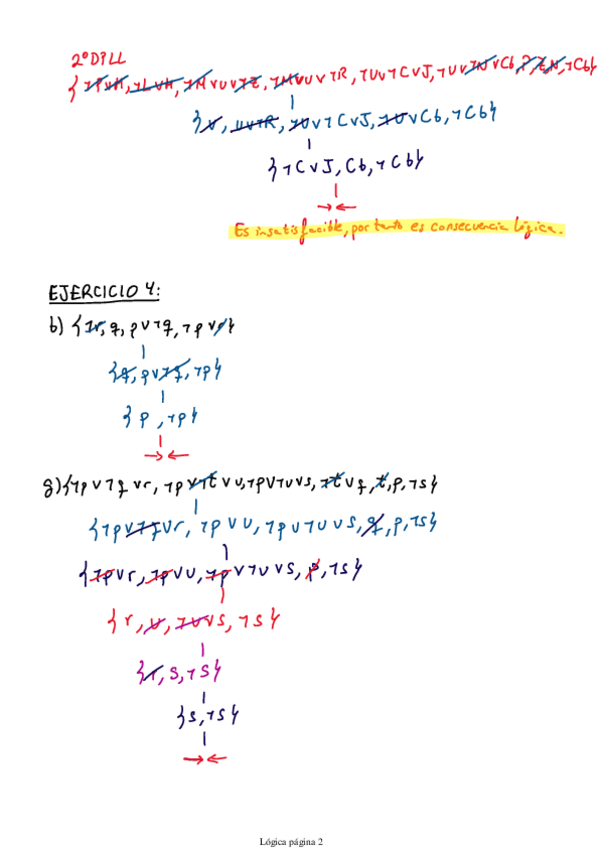 2º DPLL
{¬P∨M, ¬L∨M, ¬M∨U∨¬Z, ¬M∨U∨¬R, ¬U∨¬C∨J, ¬U∨¬N∨Cb, P, Z, N, ¬Cb}
{U, U∨¬R, ¬U∨¬C∨J, ¬U∨Cb, ¬Cb}
{¬C∨J, Cb, ¬Cb}
→←
Es insatisfacible, por tanto es consecuencia lógica.
EJERCICIO 4:
b) {¬r, q, p∨¬q, ¬p∨r}
{q, p∨¬q, ¬p}
{p, ¬p}
→←
g) {¬p∨¬q∨r, ¬p∨¬t∨u, ¬p∨¬u∨s, ¬t∨q, t, p, ¬s}
{¬p∨¬q∨r, ¬p∨u, ¬p∨¬u∨s, q, p, ¬s}
{¬p∨r, ¬p∨u, ¬p∨¬u∨s, p, ¬s}
{r, u, ¬u∨s, ¬s}
{r, s, ¬s}
{s, ¬s}
→←
Lógica página 2